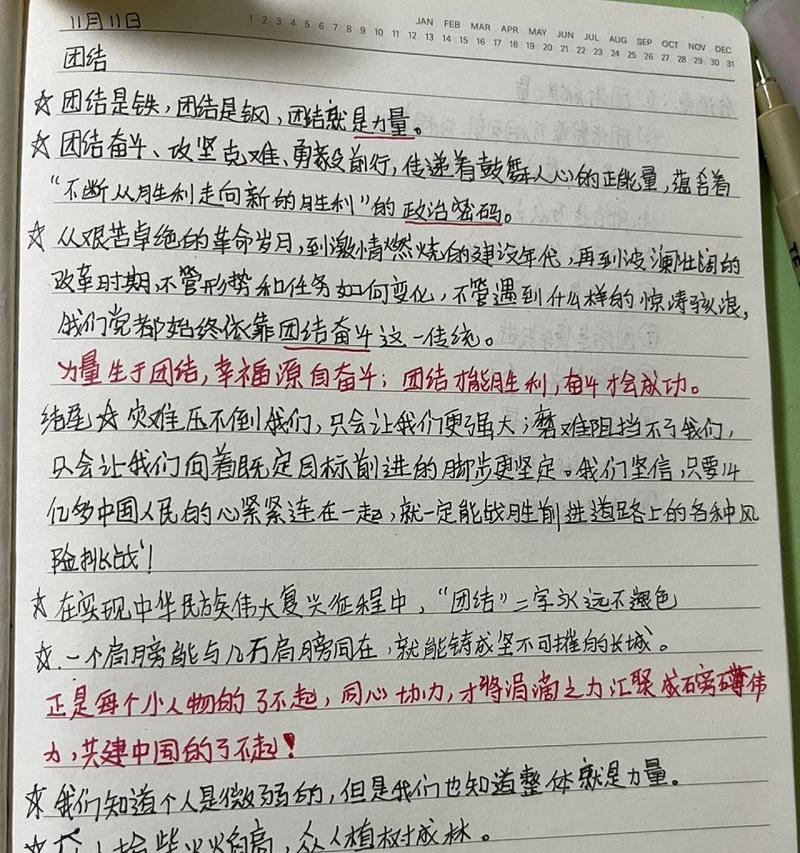 11月11日
JAN FEB MAR APR MAY JUN JUL AUG SEP OCT NOV DEC
1 2 3 4 5 6 7 8 9 10 11 12 13 14 15 16 17 18 19 20 21 22 23 24 25 26 27 28 29 30 31
团结
☆ 团结是铁,团结是钢,团结就是力量。
☆ 团结奋斗、攻坚克难、勇毅前行,传递着鼓舞人心的正能量,蕴含着
“不断从胜利走向新的胜利”的政治密码。
☆ 从艰苦卓绝的革命岁月,到激情燃烧的建设年代,再到波澜壮阔的
改革时期,不管形势和任务如何变化,不管遇到什么样的惊涛骇浪,
我们党都始终依靠团结奋斗这一传统。
力量生于团结,幸福源自奋斗;团结才能胜利,奋斗才会成功。
结尾☆ 灾难压不倒我们,只会让我们更强大;磨难阻挡不了我们,
只会让我们向着既定目标前进的脚步更坚定。我们坚信,只要14
亿多中国人民的心紧紧连在一起,就一定能战胜前进道路上的各种风
险挑战!
☆ 在实现中华民族伟大复兴征程中,“团结”二字永远不褪色
☆ 一个肩膀能与几万肩膀同在,就能铸成坚不可摧的长城。
正是每个小人物的了不起,同心协力,才将涓滴之力汇聚成磅礴伟
力,共建中国的了不起!
☆ 我们知道个人是微弱的,但是我们也知道整体就是力量。
☆ 人拾柴火焰高,众人植树成林。